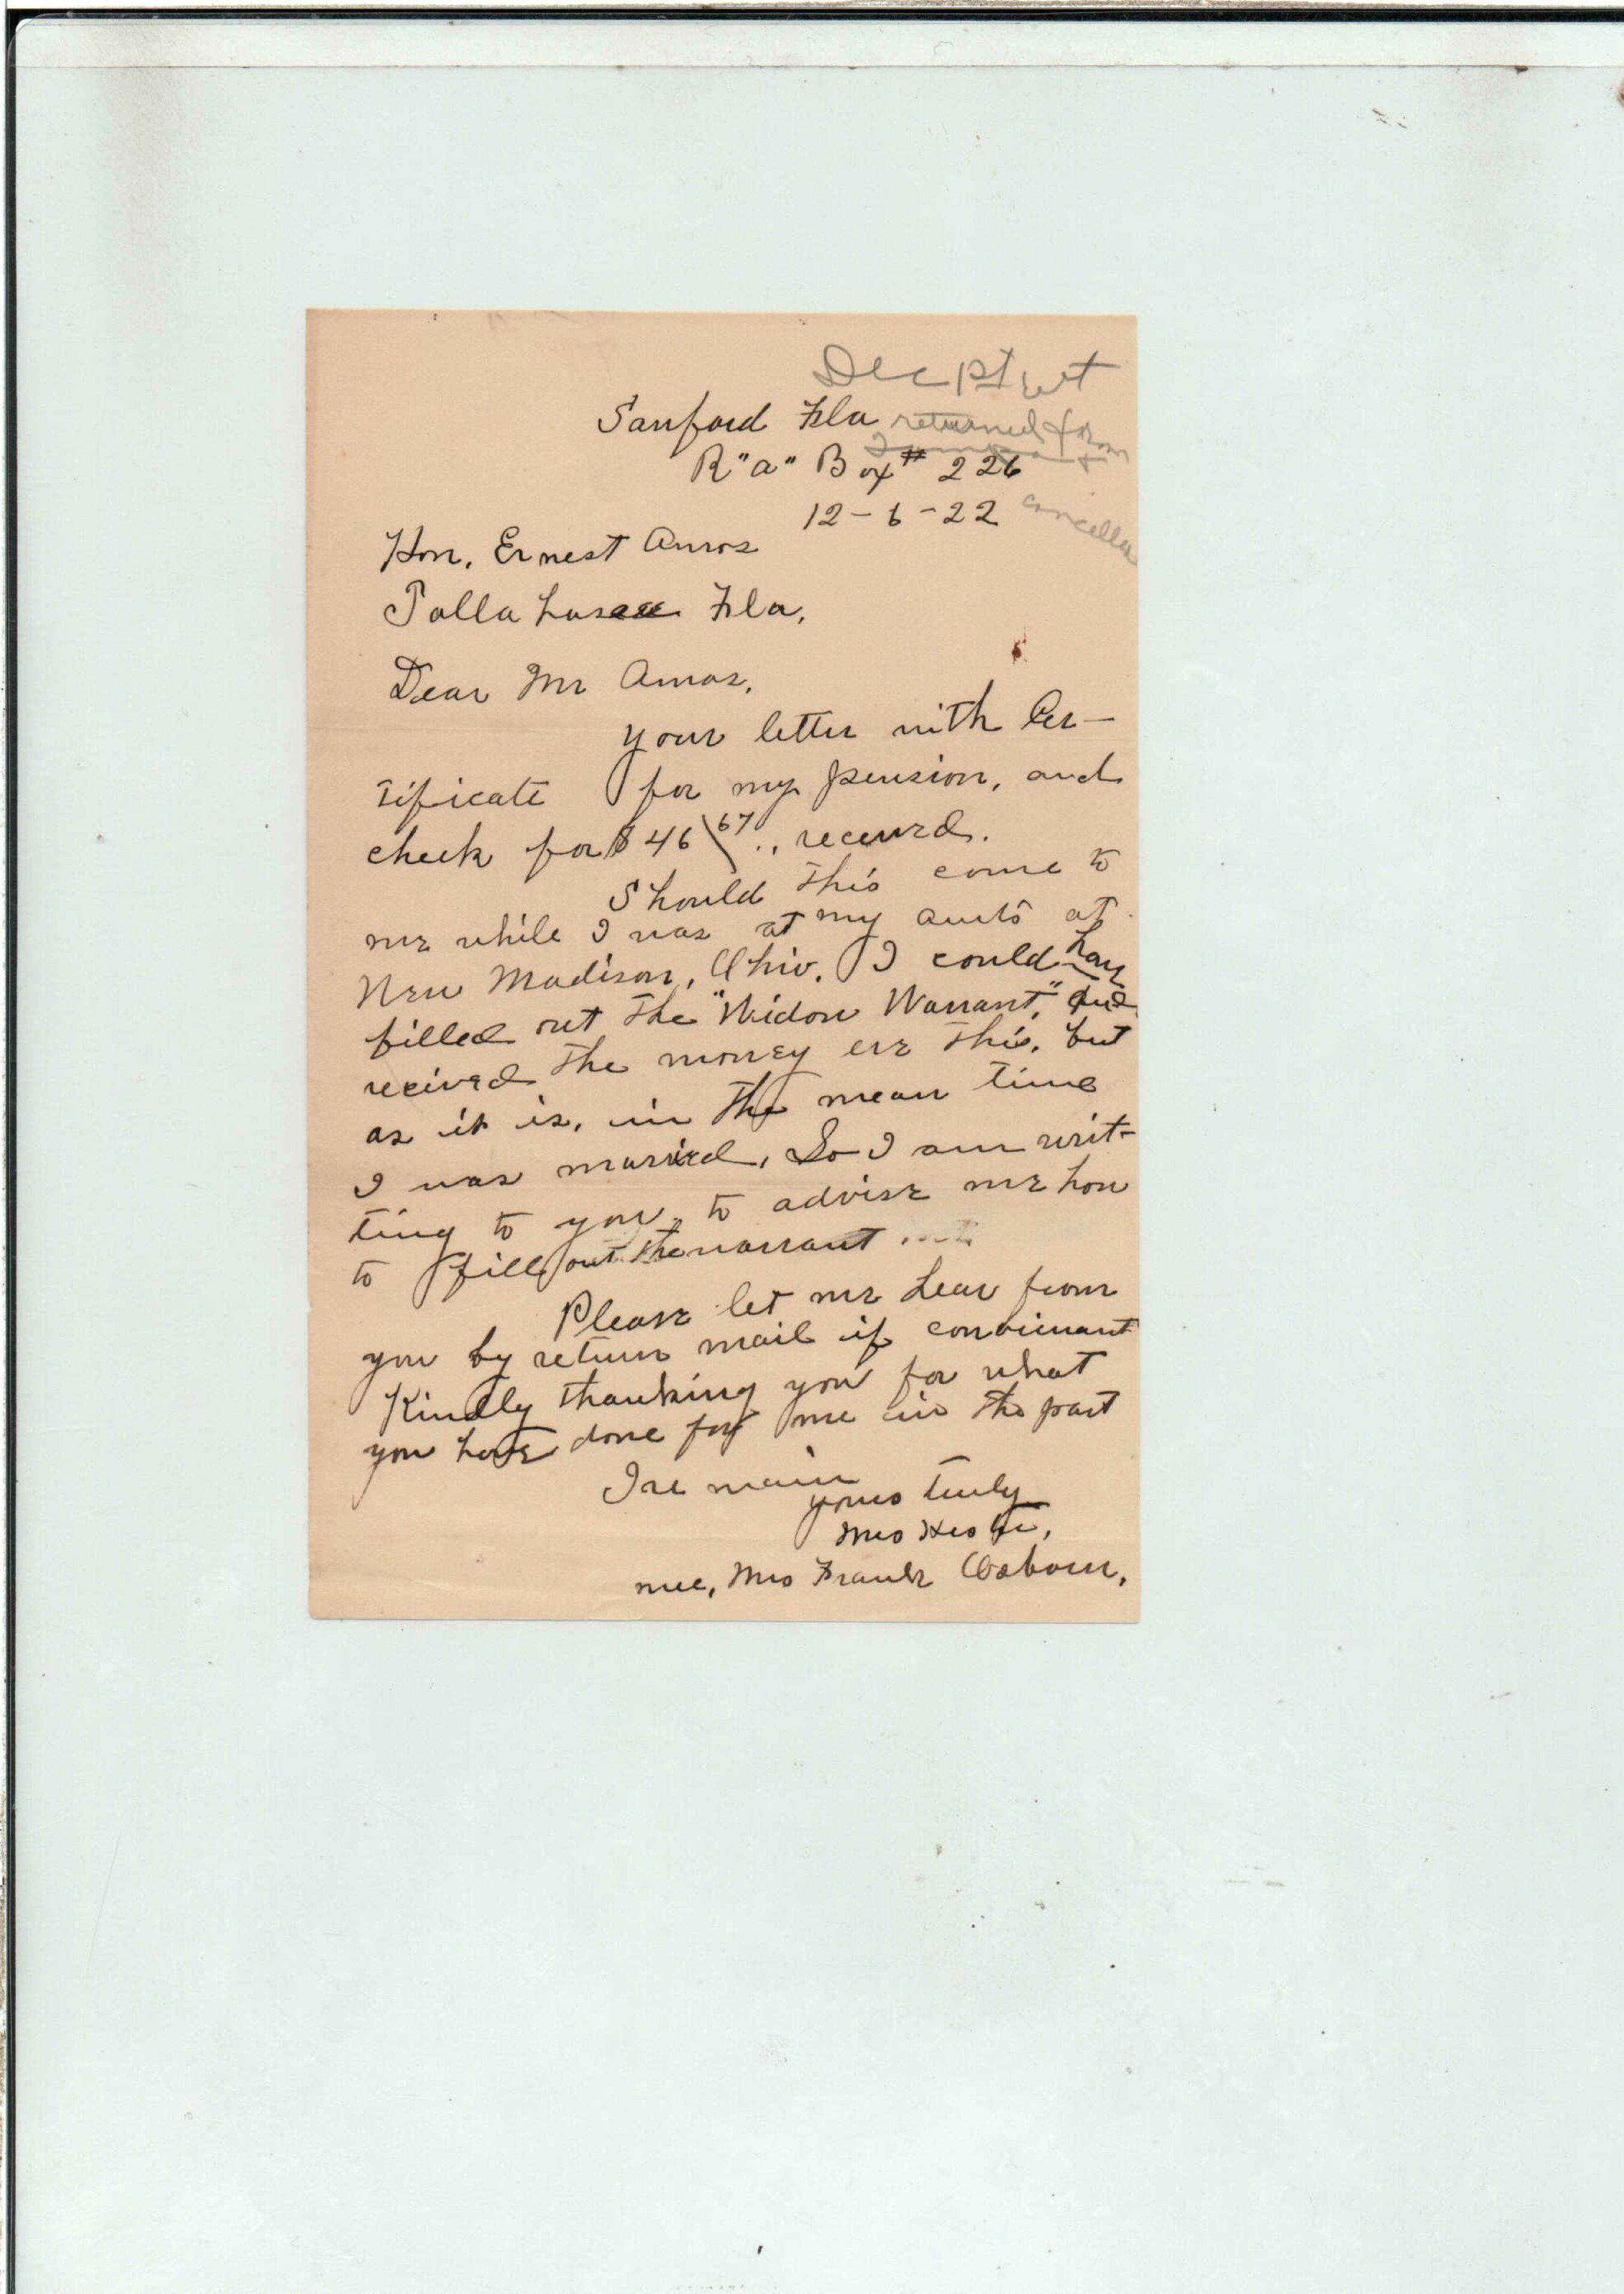 Dec 1st
Sanford Fla returned from
R "a" Box # 226
12-6-22 cancelled
Hon. Ernest Amos
Tallahasee Fla,
Dear Mr Amos,
your letter with Cer-
tificate for my pension, and
check for $46 67, received.
Should this come to
me while I was at my aunts at
New Madison, Ohio. I could have
filled out the "Widow Warrant," and
recived the money ere this. but
as it is, in the mean time
I was married, So I am writ-
ting to you, to advise me how
to fill out the warrant
Please let me hear from
you by return mail if convienant
Kindly thanking you for what
you have done for me in the past
I re main
yours truly
Mrs
nee, Mrs Frank Osborn,